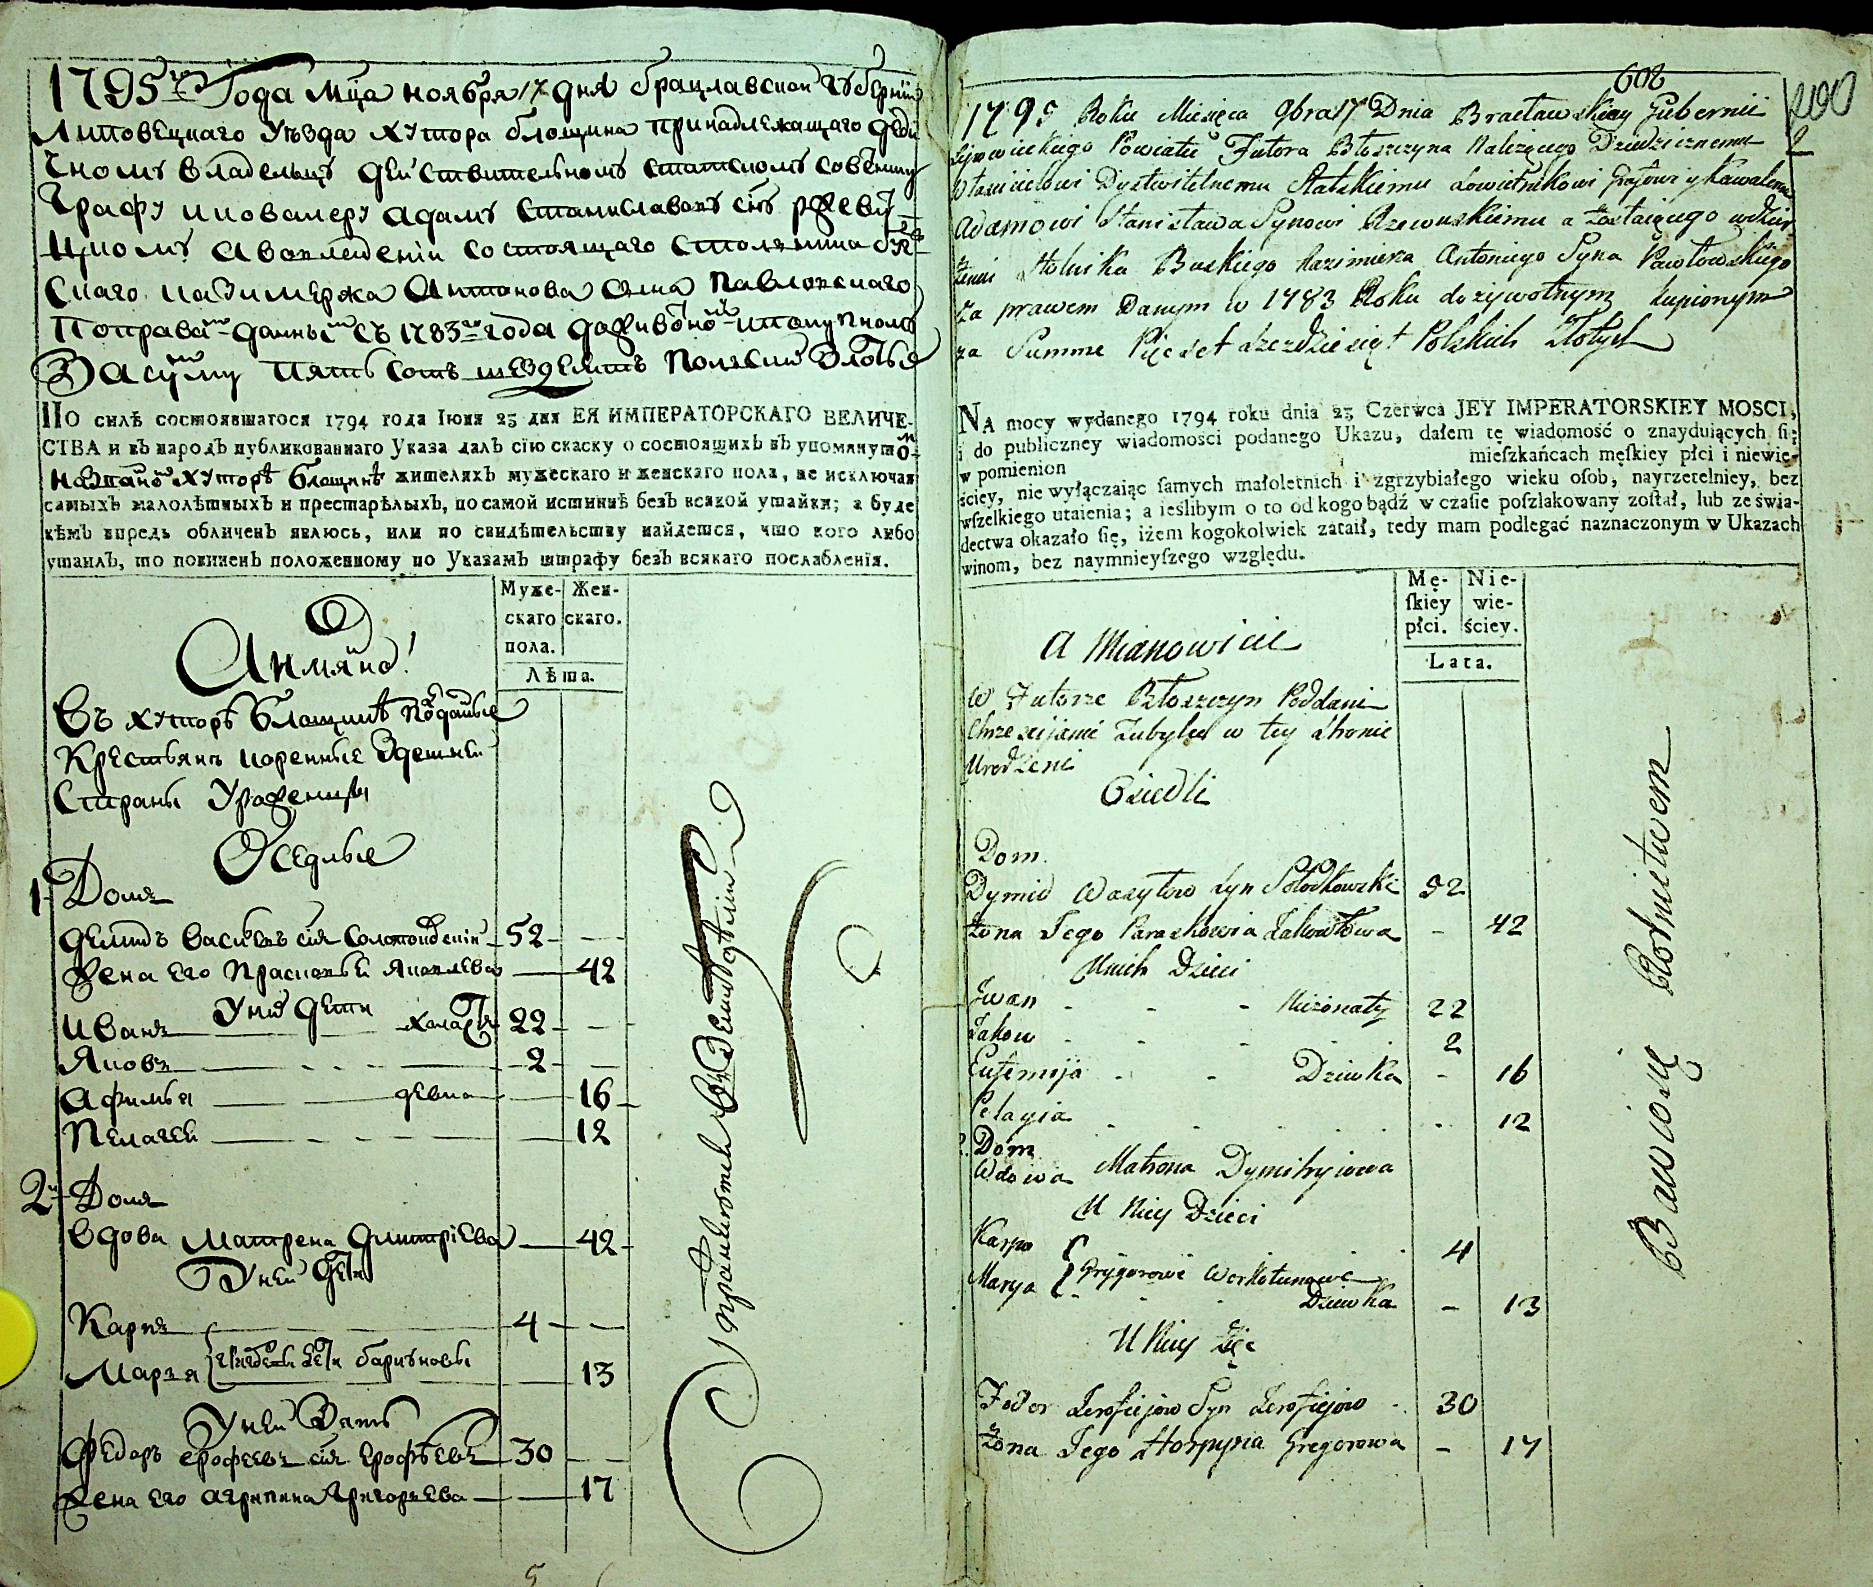 1795го Года Мца ноября 17 дня брацлавской губернїи
Липовецкаго уѣзда хутора блощина принадлежащаго дѣди
чномъ владельцъ действительномъ статскомъ советнику
Графу и ковалеру адамъ Станиславовъ снъ ржеву
цкомъ а во владенїи состоящаго столника бу
скаго казимержа антонова сына павловскаго
по праву данный съ 1783го года
За суму пять сотъ шездесятъ полский злотые
ПО силѣ состоявшагося 1794 года Іюня 23 дня ЕЯ ИМПЕРАТОРСКАГО ВЕЛИЧЕ-
СТВА и въ народъ публикованнаго Указа далъ сію скаску о состоящихъ въ упомянуто
хуторѣ блощинѣ жителяхъ мужескаго и женскаго пола, не исключая
самыхъ малолѣтныхъ и престарѣлыхъ, по самой истиннѣ безъ всякой утайки; а буде
кѣмъ впредь обличенъ явлюсь, или по свидѣтельству найдется, что кого либо
утаилъ, то повиненъ положенному по Указамъ штрафу безъ всякаго послабленія.
Муже-
скаго
пола.
Жен-
скаго.
Лѣта.
А имяно!
Въ хуторѣ блощинѣ подданые
Крестьянъ коренные здешней
Страны уроженцы
Оседлые
1 Домъ
демидъ васильевъ снъ 52
Жена его прасковья яковлева 42
У них дети
Иванъ холостъ 22
Яковъ 2
афимья девка 16
Пелагея 12
2й Домъ
вдова матрена дмитрїева 42
У ней дети
Карпъ 4
Марья 13
У ней зять
Федоръ ерофеевъ снъ ерофѣевъ 30
Жена его агрипина григорьева 17
602
2
1795 Roku Miesięca 9bra 17 Dnia Bracławskiey Gubernii
Lipowieckiego Powiatu Futora Błoszczyna Należącego Dziedzicznemu
Właścicielowi Dystwitelnemu Statskiemu Sowietnikowi Grafowi y Kawalerowi
Adamowi Stanisława Synowi Rzewuskiemu a zostaiącego w dzier
żeniu Stolnika Buskiego Kazimierza Antoniego Syna Pawłowskiego
za prawem Danym w 1783 Roku dożywotnym kupionym
za Summe Pięcset szezdziesiąt Polskich Złotych
NA mocy wydanego 1794 roku dnia 23 Czerwca JEY IMPERATORSKIEY MOSCI,
i do publiczney wiadomości podanego Ukazu, dałem tę wiadomość o znayduiących ſię
w pomienion mieſzkańcach męſkiey płci i niewie-
ściey, nie wyłączaiąc ſamych małoletnich i zgrzybiałego wieku osob, nayrzetelniey, bez
wſzelkiego utaienia; a ieślibym o to od kogo bądź w czaſie poſzlakowany zoſtał, lub ze świa-
dectwa okazało ſię, iżem kogokolwiek zataił, tedy mam podlegać naznaczonym w Ukazach
winom, bez naymnieyſzego względu.
Mę-
ſkiey
płci.
Nie-
wie-
ściey.
Lata.
A Mianowicie
W Futorze Błoszczyn Poddani
Chrzescijanie w tey stronie
Urodzeni
Osiedli
Dom
Dymid Wasylow Syn Sołodkowski 52
Żona Jego Paraskowia Jakowłowa - 42
U nich Dzieci
Iwan - - - Nieżonaty 22
Jakow - - - 2
Eufemija - - Dziewka - 16
Pelagia - - - 12
2. Dom
Wdowa Matrona Dymitryjowa
U Niey Dzieci
Karpo 4
Marya Grygorowe Dziewka - 13
U Niey Zięc
Fedor Jerofiejow Syn Jerofiejow - 30
Żona Jego Horpyna Gregorowa - 17
Bawiosię Rolnictwem